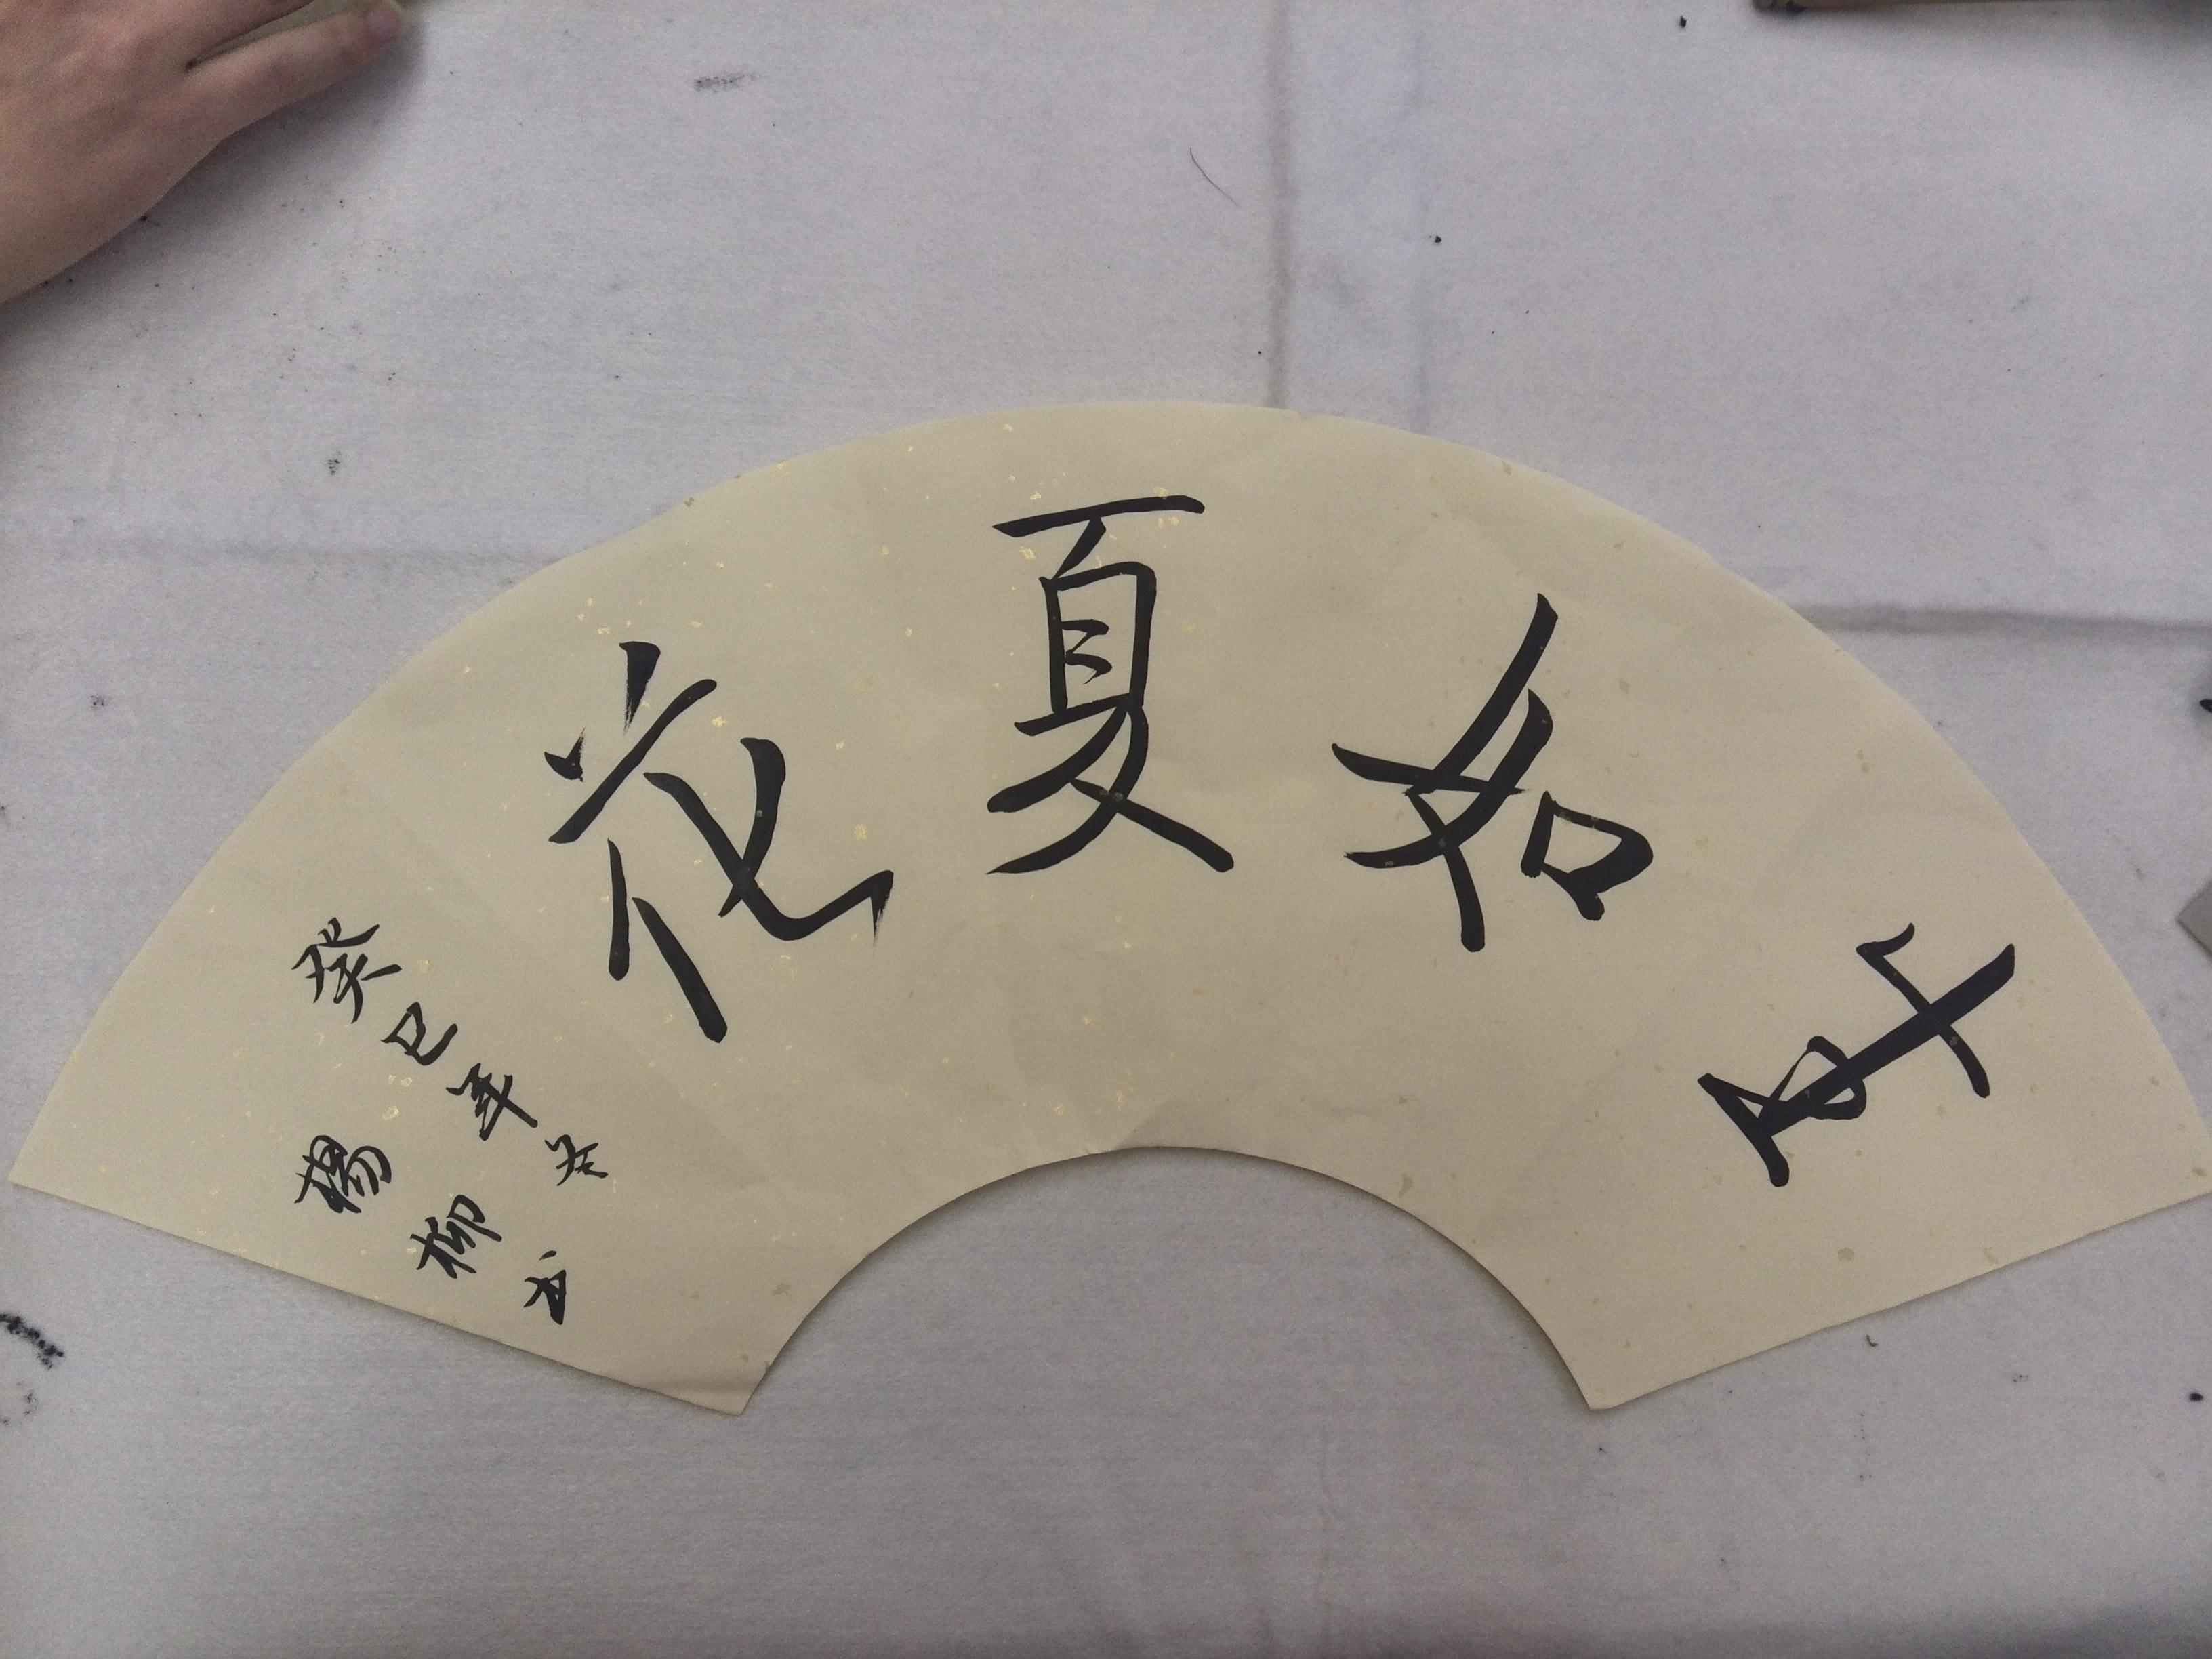 生如夏花
癸巳年冬
楊柳書